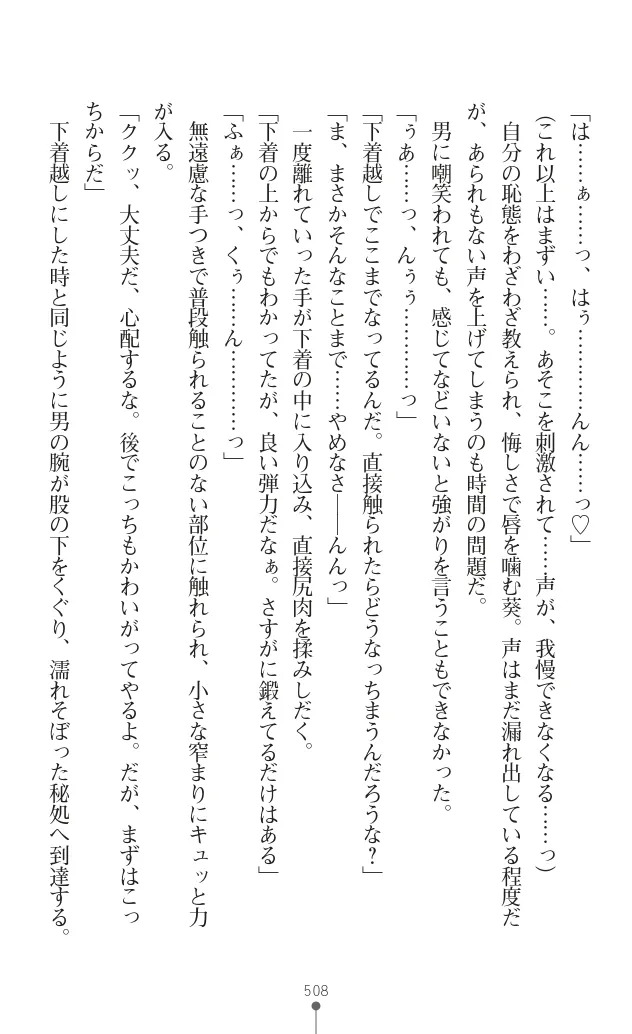 「は……ぁ……っ、はぅ…………んん……っ♡」
(これ以上はまずい……。あそこを刺激されて……声が、我慢できなくなる……っ)
自分の恥態をわざわざ教えられ、悔しさで唇を噛む葵。声はまだ漏れ出している程度だ
が、あられもない声を上げてしまうのも時間の問題だ。
男に嘲笑われても、感じてなどいないと強がりを言うこともできなかった。
「ぅあ……っ、んぅぅ…………っ」
「下着越しでここまでなってるんだ。直接触られたらどうなっちまうんだろうな?」
「ま、まさかそんなことまで……やめなさ――んんっ」
一度離れていった手が下着の中に入り込み、直接尻肉を揉みしだく。
「下着の上からでもわかってたが、良い弾力だなぁ。さすがに鍛えてるだけはある」
「ふぁ……っ、くぅ……ん…………っ」
無遠慮な手つきで普段触られることのない部位に触れられ、小さな窄まりにキュッと力
が入る。
「ククッ、大丈夫だ、心配するな。後でこっちもかわいがってやるよ。だが、まずはこっ
ちからだ」
下着越しにした時と同じように男の腕が股の下をくぐり、濡れそぼった秘処へ到達する。
508